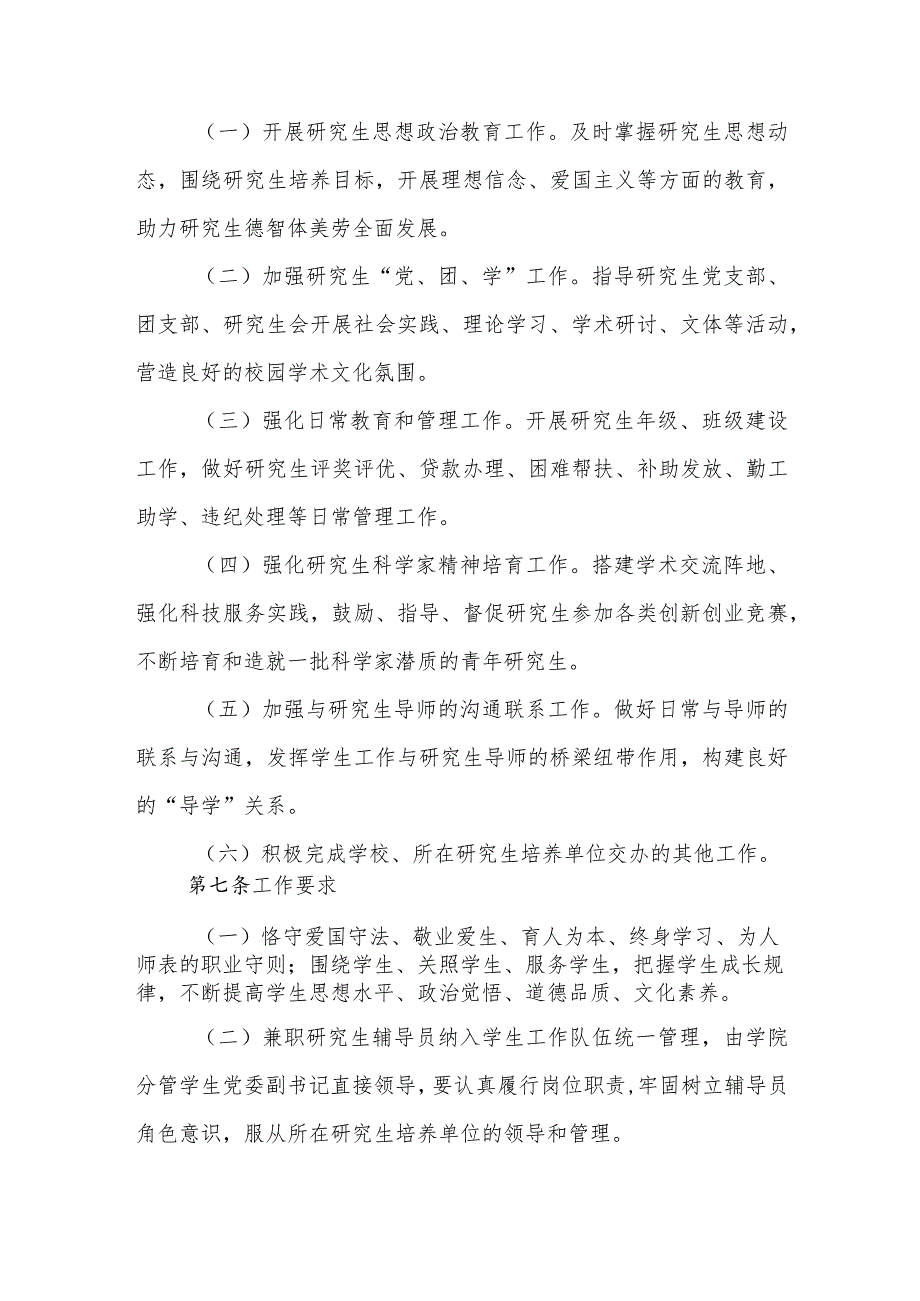 （一）开展研究生思想政治教育工作。及时掌握研究生思想动
态，围绕研究生培养目标，开展理想信念、爱国主义等方面的教育，
助力研究生德智体美劳全面发展。
（二）加强研究生“党、团、学”工作。指导研究生党支部、
团支部、研究生会开展社会实践、理论学习、学术研讨、文体等活动，
营造良好的校园学术文化氛围。
（三）强化日常教育和管理工作。开展研究生年级、班级建设
工作，做好研究生评奖评优、贷款办理、困难帮扶、补助发放、勤工
助学、违纪处理等日常管理工作。
（四）强化研究生科学家精神培育工作。搭建学术交流阵地、
强化科技服务实践，鼓励、指导、督促研究生参加各类创新创业竞赛，
不断培育和造就一批科学家潜质的青年研究生。
（五）加强与研究生导师的沟通联系工作。做好日常与导师的
联系与沟通，发挥学生工作与研究生导师的桥梁纽带作用，构建良好
的“导学”关系。
（六）积极完成学校、所在研究生培养单位交办的其他工作。
第七条工作要求
（一）恪守爱国守法、敬业爱生、育人为本、终身学习、为人
师表的职业守则；围绕学生、关照学生、服务学生，把握学生成长规
律，不断提高学生思想水平、政治觉悟、道德品质、文化素养。
（二）兼职研究生辅导员纳入学生工作队伍统一管理，由学院
分管学生党委副书记直接领导，要认真履行岗位职责，牢固树立辅导员
角色意识，服从所在研究生培养单位的领导和管理。